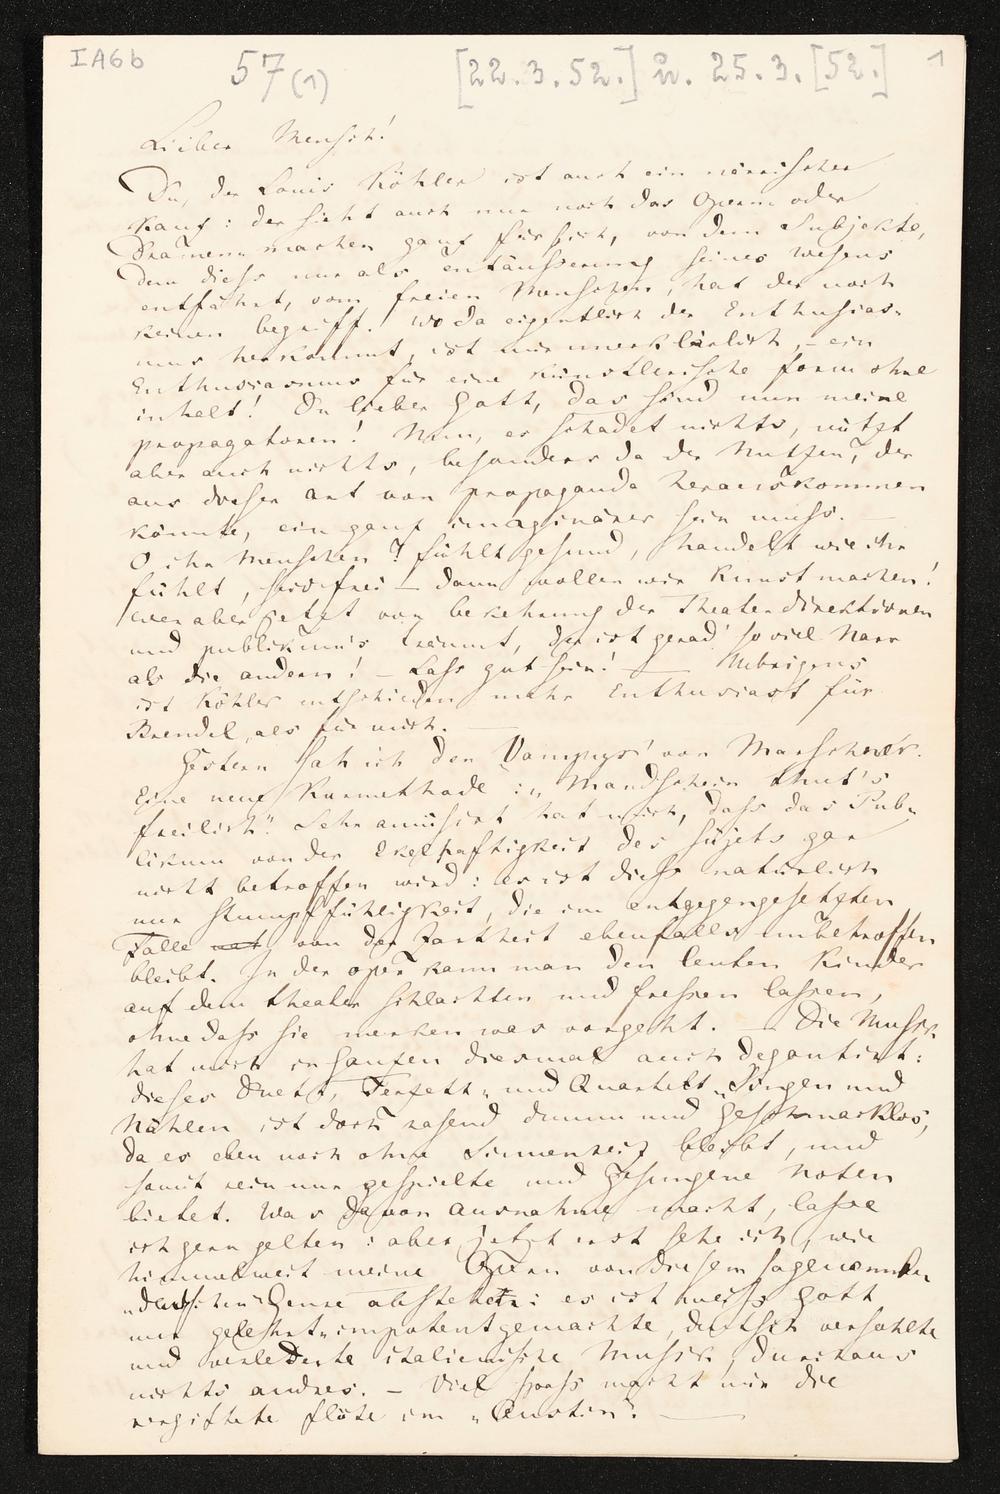 IA6b
57(1)
[22.3.52.] u. 25.3.[52.]
1
Lieber Mensch!
Du, der Louis Köhler ist auch ein närrischer
Kauz: der sieht auch nur noch das Opern oder
Dramen machen ganz für sich, von dem Subjekte,
dem diess nur als entäusserung seines wesens
entfährt, vom freien Menschen, hat der noch
keinen begriff. Wo da eigentlich der Enthusias-
mus herkommt, ist mir unerklärlich, – ein
Enthusiasmus für eine künstlerische form ohne
inhalt! Du lieber Gott, das sind nun meine
propagatoren! Nun, es schadet nichts, nützt
aber auch nichts, besonders da der Nutzen, der
aus dieser art von propaganda herauskommen
könnte, ein ganz imaginärer sein muss. —
O ihr Menschen! fühlt gesund, handelt wie ihr
fühlt, seid frei – dann wollen wir Kunst machen!
wer aber jetzt von bekehrung der Theaterdirektionen
und publikum's träumt, der ist gerad' so viel Narr
als die andern! – Lass gut sein! — Uebrigens
ist Köhler entschieden mehr Enthusiast für
Brendel, als für mich. —
Gestern sah ich den Vampyr' von Marschner.
Eine neue Kurmethode: „Mondschein thut's
freilich". Sehr amüsirt hat mich, dass das Pub-
likum von der Ekelhaftigkeit des süjets gar
nicht betroffen wird: es ist diess natürlich
nur stumpffühligkeit, die im entgegengesetzten
Falle von der Zartheit ebenfalls unbetroffen
bleibt. In der oper kann man den leuten Kinder
auf dem theater schlachten und fressen lassen,
ohne dass sie merken was vorgeht. — Die Musik
hat mich im Ganzen diesmal auch degoutirt:
dieses Duett, Terzett- und Quartett-Singen und
Nählen ist doch rasend dumm und geschmacklos,
da es eben noch ohne Sinnenreiz bleibt, und
somit rein nur gespielte und gesungene Noten
bietet. Was davon ausnahme macht, lasse
ich gern gelten: aber jetzt erst sehe ich, wie
himmelweit meine Opern von diesem sogenannten
„deutschen" Genre abstehen: es ist weiss Gott
nur gelehrt-impotentgemachte, deutsch versohlte
und verlederte italienische Musik, durchaus
nichts andres. – Viel spass macht mir die
vergiftete flöte im „Austin". —